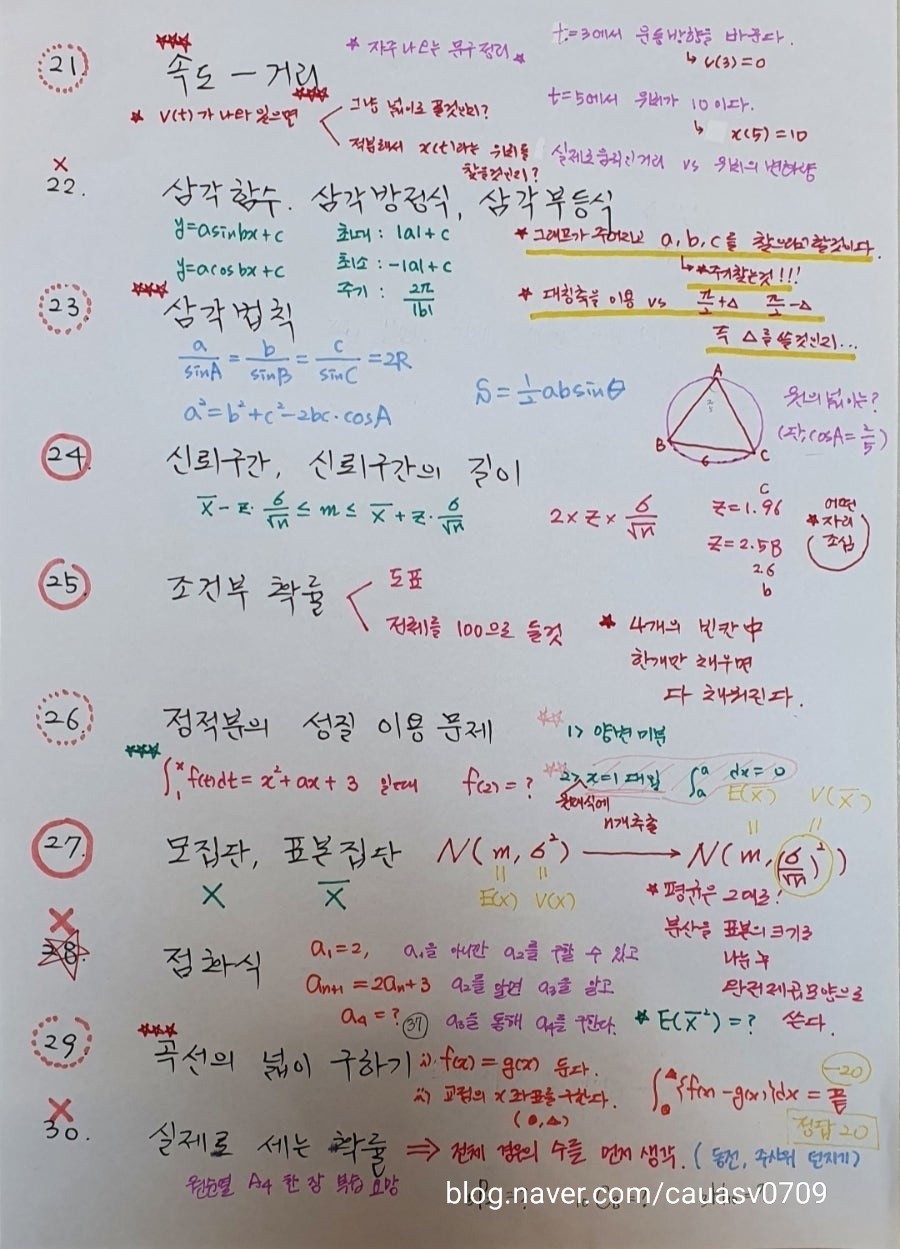 21
속도 - 거리
* 자주 나오는 문구정리 *
t=3에서 운동방향을 바꾼다.
↳ v(3)=0
* v(t)가 나와 있으면
그냥 넓이로 풀것인지?
적분해서 x(t)라는 위치를 찾을것인지?
t=5에서 위치가 10이다.
↳ x(5)=10
실제로 움직인거리 vs 위치의 변화량
× 22.
삼각함수. 삼각방정식, 삼각부등식
y=asinbx+c
y=acosbx+c
최대 : |a|+c
최소 : -|a|+c
주기 : 2π/|b|
* 그래프가 주어지고 a, b, c를 찾으라고 할것이다.
↳ *주기찾는것!!!
* 대칭축을 이용 vs π/2+△ π/2-△
즉 △를 쓸것인지...
23
삼각법칙
a/sinA = b/sinB = c/sinC = 2R
a²=b²+c²-2bc·cosA
S=½absinθ
A
B
C
6
원의 넓이는?
(단, cosA=2/5)
24.
신뢰구간, 신뢰구간의 길이
X̄-z·σ/√n ≤ m ≤ X̄+z·σ/√n
2×z×σ/√n
z=1.96
z=2.58
2.6
어떤
* 자리
조심
25.
조건부 확률
도표
전체를 100으로 둘것
* 4개의 빈칸中
한개만 채우면
다 채워진다.
26.
정적분의 성질 이용 문제
∫₁ˣ f(t)dt = x²+ax+3 일때 f(2)=?
1) 양변 미분
2) x=1 대입 ∫ₐᵃ dx=0
27.
모집단, 표본집단
X
X̄
N(m, σ²) → N(m, (σ/√n)²)
n개추출
E(X) V(X)
E(X̄) V(X̄)
* 평균은 그대로!
분산을 표본의 크기로
나눈 후
완전제곱모양으로
쓴다.
* E(X̄²)=?
28.
점화식
a₁=2,
aₙ₊₁=2aₙ+3
a₄=? 37
a₁을 아니깐 a₂를 구할 수 있고
a₂를 알면 a₃을 알고
a₃을 통해 a₄를 구한다.
29
곡선의 넓이 구하기
i) f(x)=g(x) 둔다.
ii) 교점의 x좌표를 구한다.
(●,▲)
∫●▲{f(x)-g(x)}dx = 끝
-20
정답 20
× 30.
실제로 세는 확률 ⇒ 전체 경우의 수를 먼저 생각. (동전, 주사위 던지기)
원순열 A4 한 장 복습 요망
blog.naver.com/caulasv0709